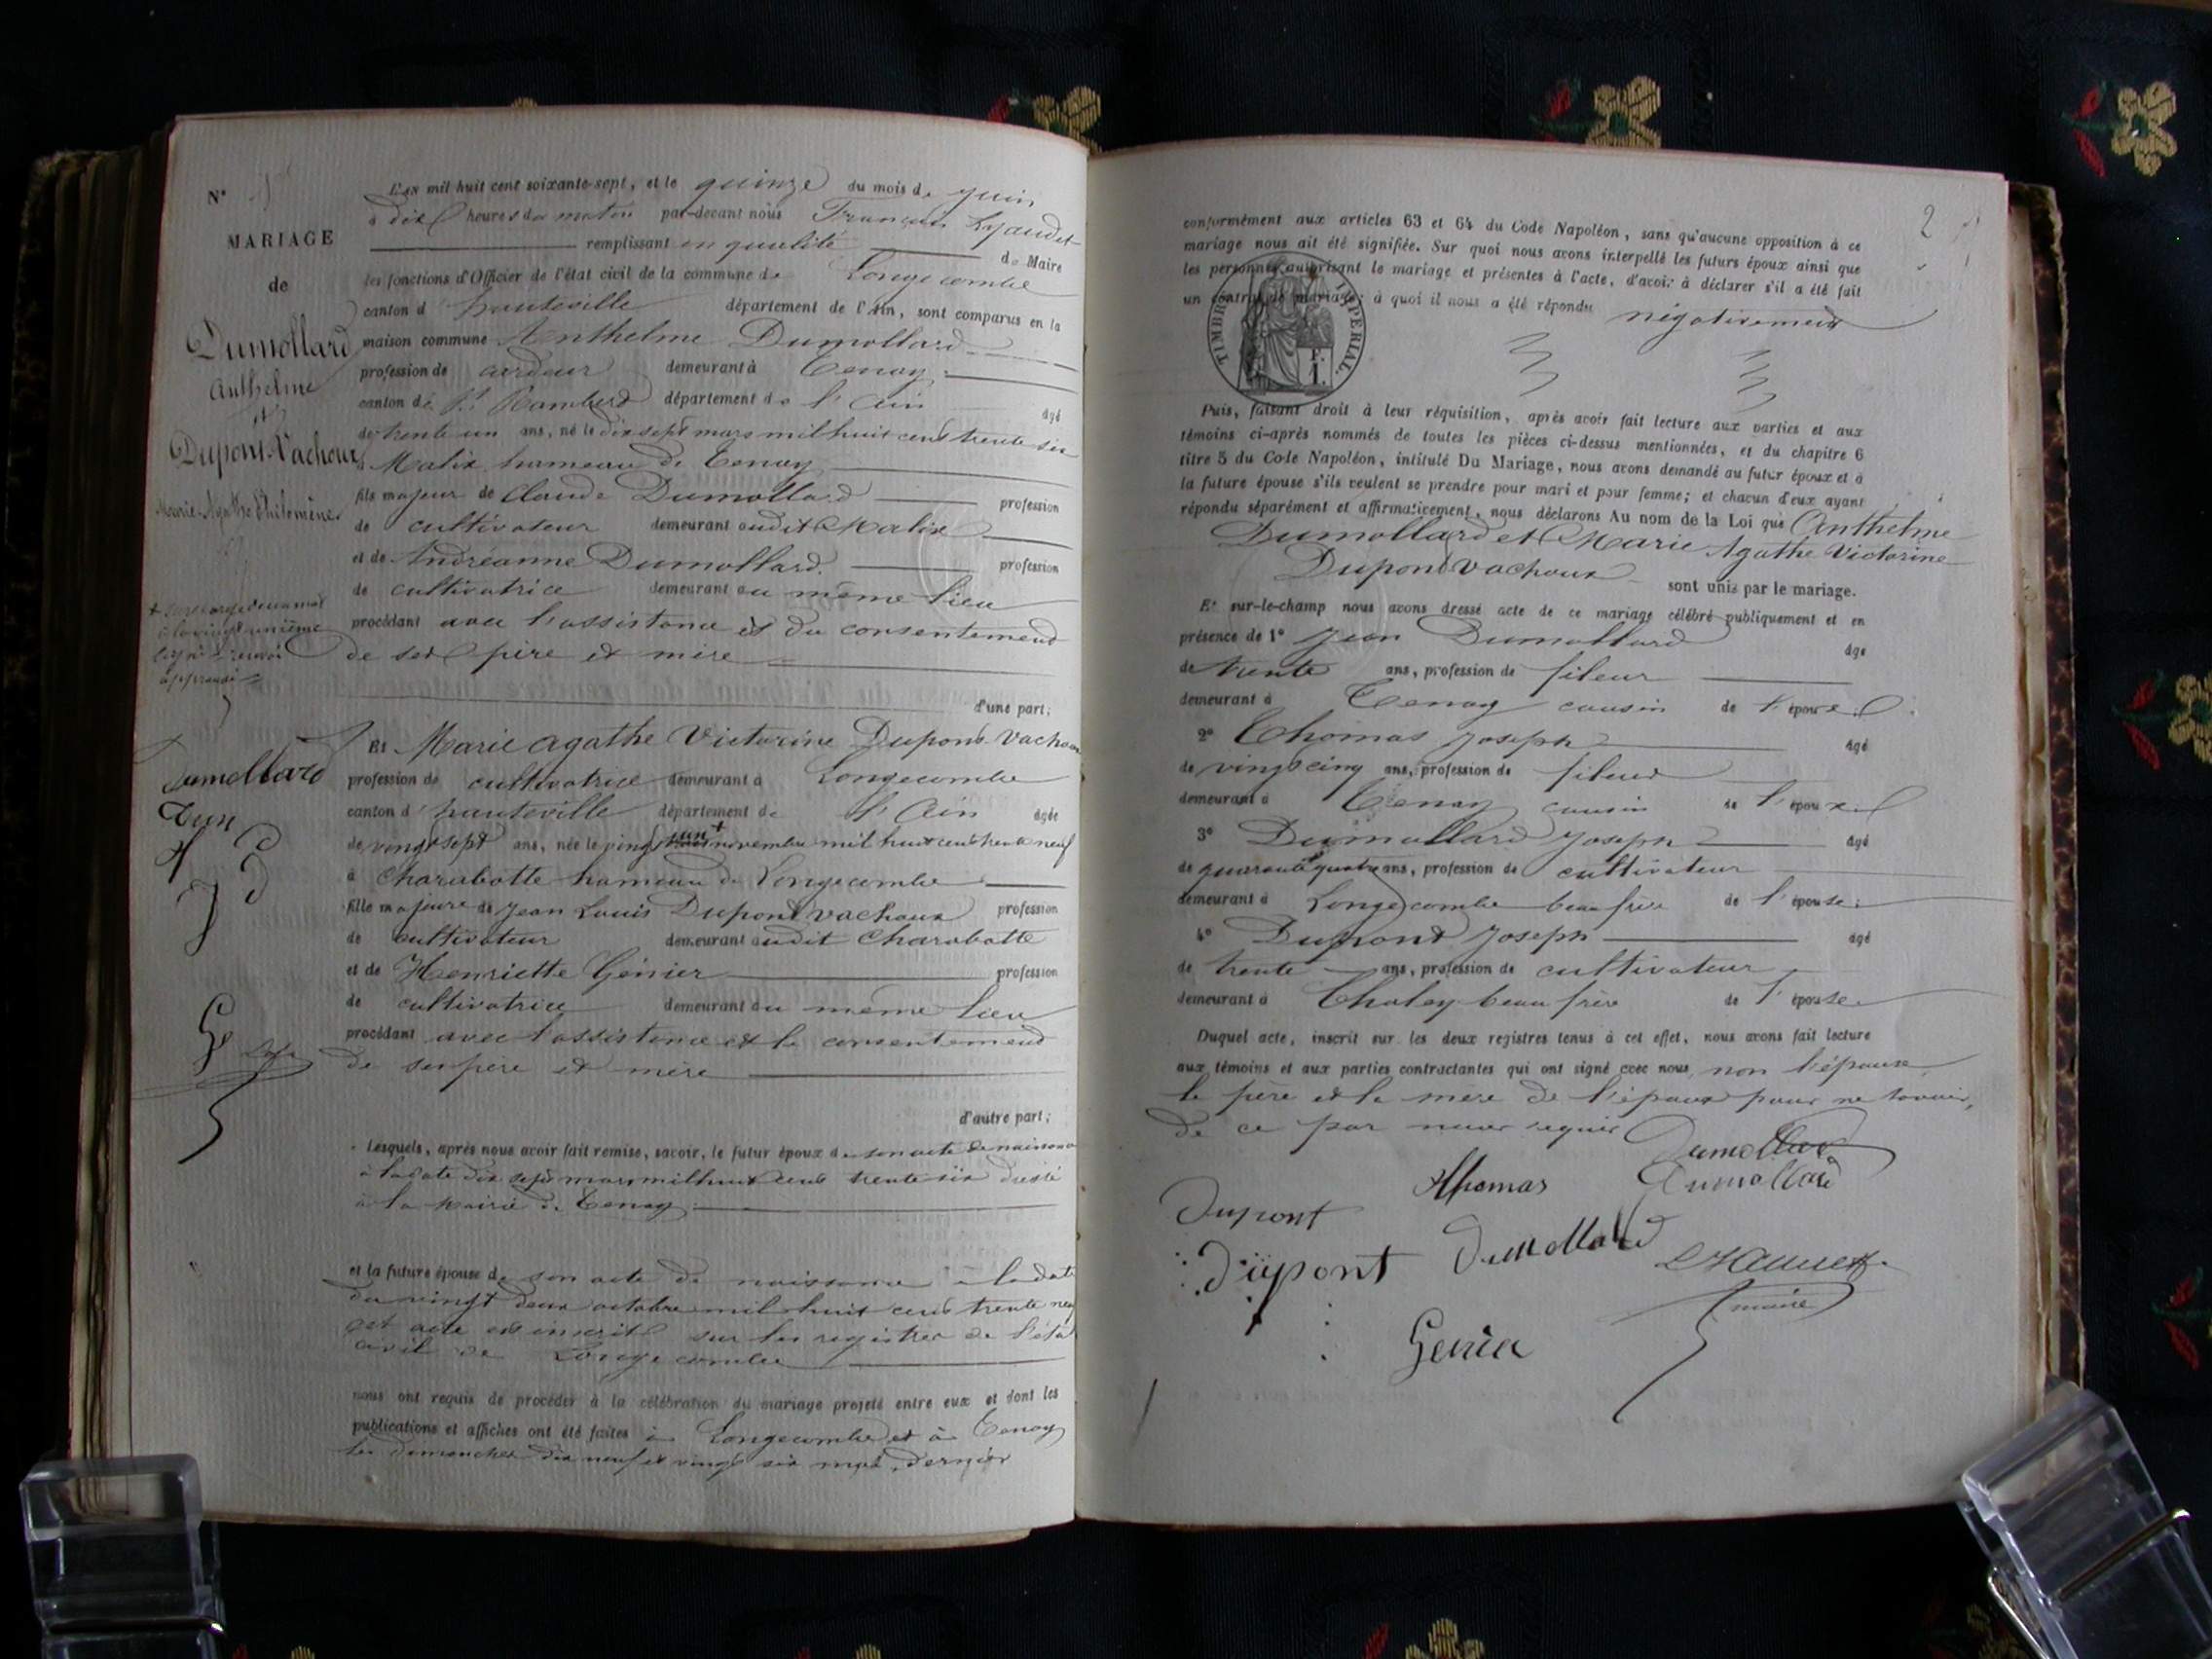 N° 1
MARIAGE
de
Dumollard
Anthelme
et
Dupont-Vachoux
Marie-Agathe Philomène
L'an mil huit cent soixante-sept, et le quinze du mois de juin
à dix heures du matin par-devant nous François Lyaudet
remplissant en qualité de Maire
les fonctions d'Officier de l'état civil de la commune de Longecombe
canton d'hauteville département de l'Ain, sont comparus en la
maison commune Anthelme Dumollard
profession de cardeur demeurant à Tenay
canton de St Rambert département de l'Ain âgé
de trente un ans, né le dix sept mars mil huit cent trente six
à Malix hameau de Tenay
fils majeur de Claude Dumollard profession
de cultivateur demeurant audit Malix
et de Andréanne Dumollard profession
de cultivatrice demeurant au même lieu
procédant avec l'assistance et du consentement
de ses père et mère
d'une part;
+ surcharge d'un mot
à la vingt unième
ligne renvoi
approuvé
Et Marie agathe Victorine Dupont-Vachoux
profession de cultivatrice demeurant à Longecombe
canton d'hauteville département de l'Ain âgée
de vingt sept ans, née le vingt un + novembre mil huit cent trente neuf
à Charabotte hameau de Longecombe
fille majeure de Jean Louis Dupont vachoux profession
de cultivateur demeurant audit Charabotte
et de Henriette Génier profession
de cultivatrice demeurant au même lieu
procédant avec l'assistance et le consentement
de ses père et mère
d'autre part;
Dumollard
Lesquels, après nous avoir fait remise, savoir, le futur époux de son acte de naissance
à la date dix sept mars mil huit cent trente six dressé
à la mairie de Tenay
et la future épouse de son acte de naissance à la date
du vingt deux octobre mil huit cent trente neuf
cet acte est inscrit sur les registres de l'état
civil de Longecombe
nous ont requis de procéder à la célébration du mariage projeté entre eux et dont les
publications et affiches ont été faites à Longecombe et à Tenay
les dimanches dix neuf et vingt six mai dernier
2
conformément aux articles 63 et 64 du Code Napoléon, sans qu'aucune opposition à ce
mariage nous ait été signifiée. Sur quoi nous avons interpellé les futurs époux ainsi que
les personnes autorisant le mariage et présentes à l'acte, d'avoir à déclarer s'il a été fait
un contrat de mariage; à quoi il nous a été répondu négativement
TIMBRE IMPERIAL
1 F.
Puis, faisant droit à leur réquisition, après avoir fait lecture aux parties et aux
témoins ci-après nommés de toutes les pièces ci-dessus mentionnées, et du chapitre 6
titre 5 du Code Napoléon, intitulé Du Mariage, nous avons demandé au futur époux et à
la future épouse s'ils veulent se prendre pour mari et pour femme; et chacun d'eux ayant
répondu séparément et affirmativement, nous déclarons Au nom de la Loi que Anthelme
Dumollard et Marie Agathe Victorine
Dupont vachoux sont unis par le mariage.
Et sur-le-champ nous avons dressé acte de ce mariage célébré publiquement et en
présence de 1° Jean Dumollard âgé
de trente ans, profession de fileur
demeurant à Tenay cousin de l'époux
2° Thomas Joseph âgé
de vingt cinq ans, profession de fileur
demeurant à Tenay cousin de l'époux
3° Dumollard Joseph âgé
de quarante quatre ans, profession de cultivateur
demeurant à Longecombe beau frère de l'épouse
4° Dupont Joseph âgé
de trente ans, profession de cultivateur
demeurant à Chaley beau frère de l'épouse
Duquel acte, inscrit sur les deux registres tenus à cet effet, nous avons fait lecture
aux témoins et aux parties contractantes qui ont signé avec nous, non l'épouse
le père et la mère de l'époux pour ne savoir,
de ce par nous requis Dumollard
Thomas Dumollard
Dupont
Dupont Dumollard
Lyaudet
maire
Genier